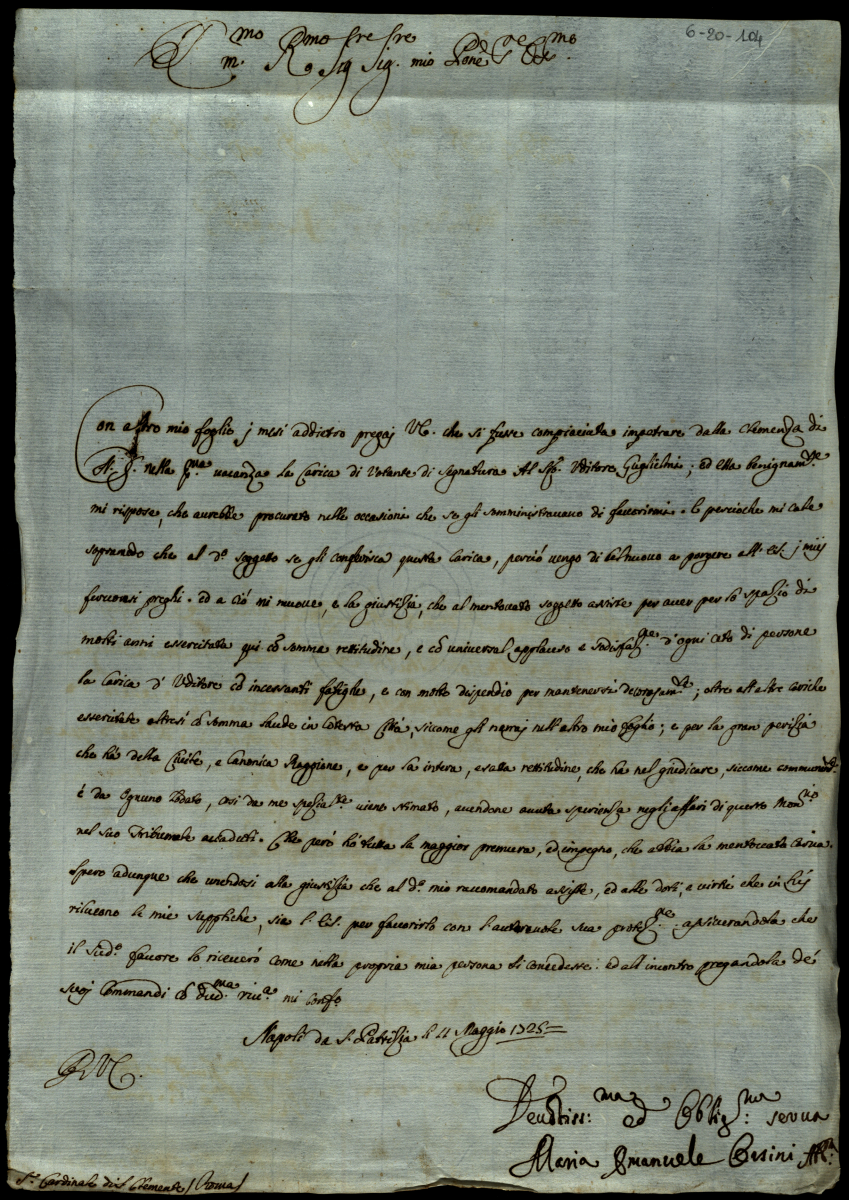 6-20-104
Em.mo R.mo Sig.re Sig.re mio P.rone Col.mo
Con altro mio foglio j mesi addietro pregaj V.E. che si fusse compiaciuta impetrare dalla Clemenza di
N.S. nella p.ma vacanza la Carica di Votante di Signatura Al Sig.r Uditore Guglielmi; ed Ella benignam.te
mi rispose, che aurebbe procurato nelle occasioni che se gli somministravano di favorirmi. E perscioche mi cale
sopramodo che al d.o soggetto se gli conferisca questa Carica, persciò vengo di bel nuovo a porgere all'E.S. j miej
fervorosi preghi. Ed a ciò mi muove, e la giustizia, che al mentovato soggetto assiste per aver per lo spazio di
molti anni essercitata qui cō somma rettitudine, e cō universal applauso e sodisfaz.ne d'ogni ceto di persone
la Carica d'Uditore cō incessanti fatighe, e con molto dispendio per mantenersi decorosam.te; oltre all'altre cariche
essercitate altresi cō somma laude in Cotesta Città, siccome gli narraj nell'altro mio foglio; e per la gran perizia
che hà della Civile, e Canonica Raggione, e per la intera, esatta rettitudine, che ha nel giudicare, siccome communem.te
è da Ognuno lodato, così da me spezial.te viene stimato, avendone avuta sperienza negli affari di questo Mon.rio
nel suo Tribunale accaduti. Che però hò tutta la maggior premura, ed impegno, che abbia la mentovata Carica.
Spero adunque che unendosi alla giustizia che al d.o mio raccomandato assiste, ed alle doti, e virtù che in Lui
rilucono le mie suppliche, sia l'E.S. per favorirlo con l'autorevole sua protez.ne assicurandola che
il sud.o favore lo riceverò come nella propria mia persona si concedesse. Ed all'incontro pregandola de'
suoj Commandi cō d.ma riv.a mi conf.o
Napoli da S. Patrizia li 11 Maggio 1725
D.V.E.
Devotiss.ma ed Oblig.ma serva
Maria Emanuele Orsini
S.r Cardinale di S. Clemente (Roma)